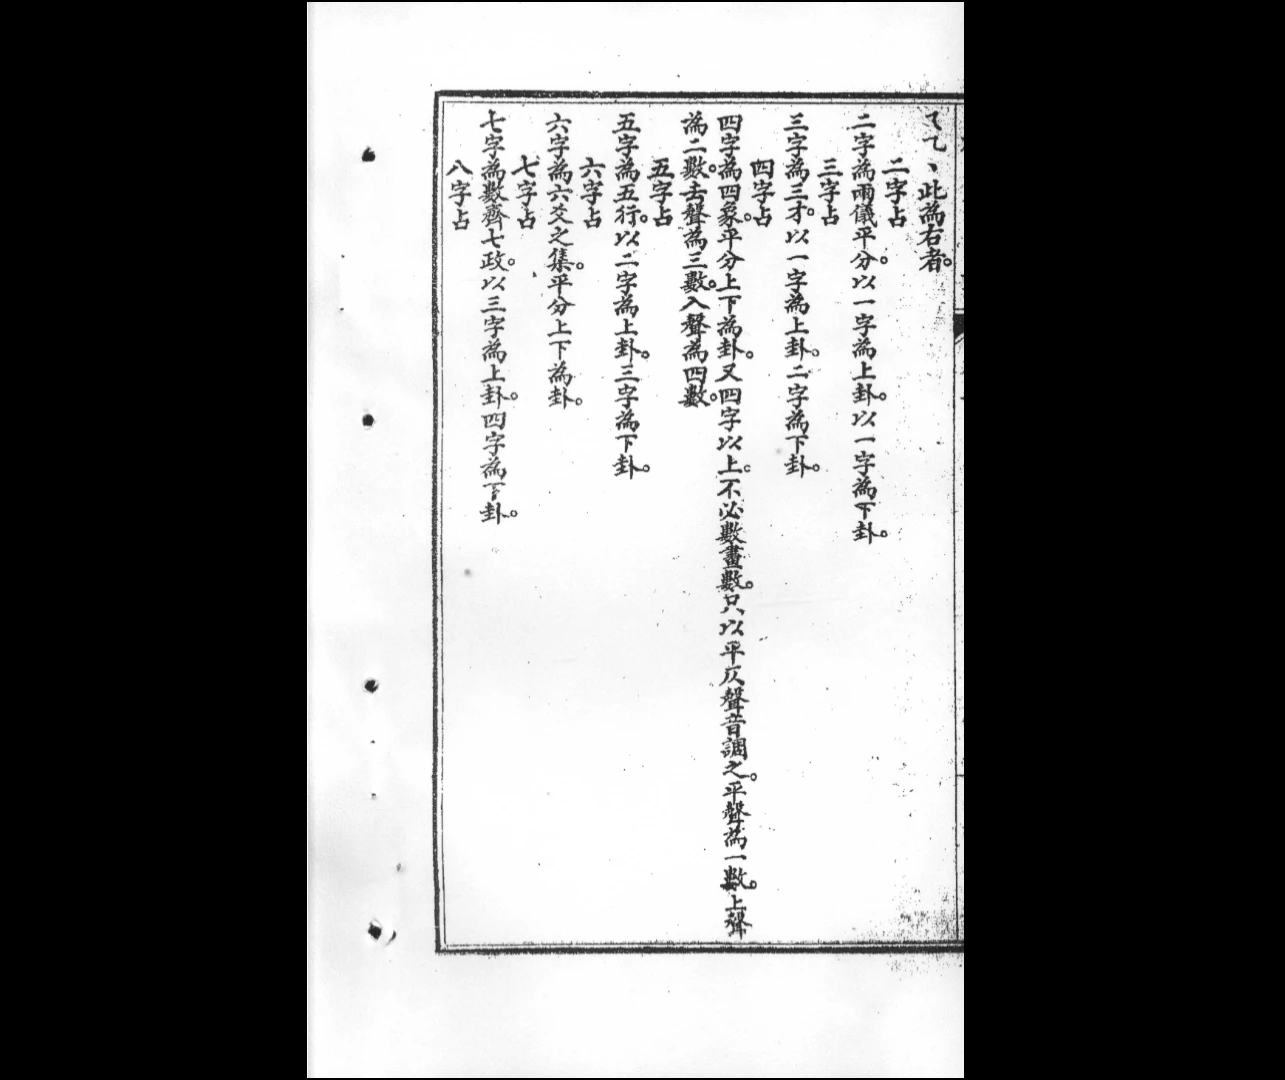 乁乙、此為右者。
二字占
二字為兩儀平分。以一字為上卦。以一字為下卦。
三字占
三字為三才。以一字為上卦。二字為下卦。
四字占
四字為四象。平分上下為卦。又四字以上。不必數畫數。只以平仄聲音調之。平聲為一數。上聲
為二數。去聲為三數。入聲為四數。
五字占
五字為五行。以二字為上卦。三字為下卦。
六字占
六字為六爻之集。平分上下為卦。
七字占
七字為數齊七政。以三字為上卦。四字為下卦。
八字占